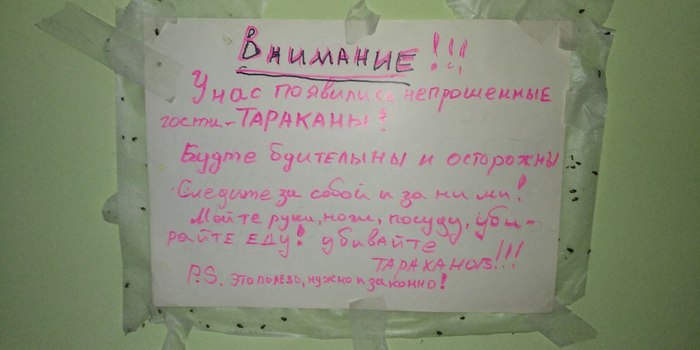 Внимание!!!
У нас появились непрошенные
гости-ТАРАКАНЫ!
Будте бдительны и осторожны
Следите за собой и за ними!
Мойте руки, ноги, посуду, уби-
райте ЕДУ! убивайте
ТАРАКАНОВ!!!
P.S. это полезо, нужно и законно!